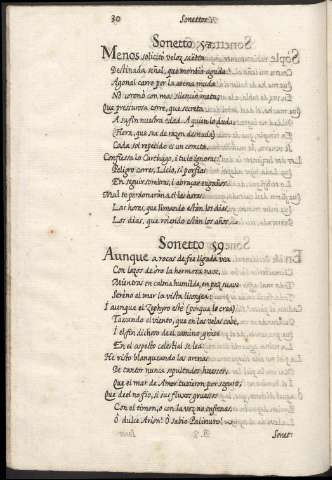 30 Sonettos
Sonetto 58
Menos solicitó veloz saeta
Destinada señal, que mordió aguda
Agonal carro por la arena muda
No coronó con mas silencio meta;
Que presurosa corre, que secreta
A su fin nuestra edad. A quien lo duda
(Fiera, que sea de razon desnuda)
Cada sol repetido es un cometa.
Confiessa lo Carthago, i tu lo ignoras?
Peligro corres, Licio, si porfias
En seguir sombras, i abraçar engaños.
Mal te perdonarán a ti las horas,
Las horas, que limando están los dias,
Los dias, que roiendo están los años.
Sonetto 59
Aunque a rocas de fee ligada vea
Con lazos de oro la hermosa nave,
Mientras en calma humilde, en paz suave
Sereno el mar la vista lisongea;
I aunque el Zephyro esté (porque le crea)
Tassando el viento, que en las velas cabe,
I el fin dichoso del camino grave
En el aspecto celestial se lea;
He visto blanqueando las arenas
De tantos nunca sepultados huessos,
Que el mar de Amor tuvieron por seguro,
Que del no fio, si sus fluxos gruessos
Con el timon, o con la voz no enfrenas,
O dulce Arion! O sabio Palinuro!
Sonet-